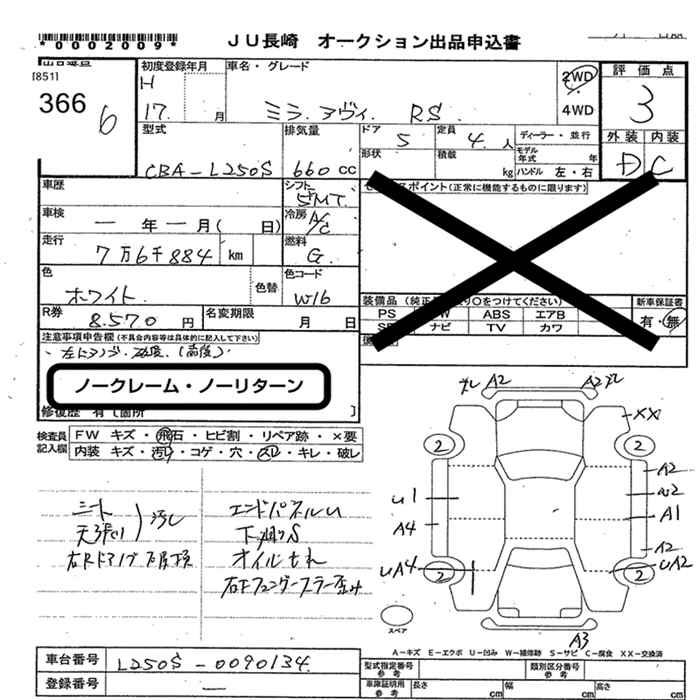 *0002009*
JU長崎 オークション出品申込書
[851]
366
6
初度登録年月
H
17. 月
車名・グレード
ミラ アヴィ RS
2WD
4WD
評価点
3
外装 内装
D C
型式
CBA-L250S
排気量
660 cc
ドア 5
定員 4. 人
ディーラー・並行
形状
積載 kg
モデル年式 年
ハンドル 左・右
車歴
シフト
5MT
セールスポイント(正常に機能するものに限ります)
車検
ー 年 ー 月( 日)
冷房
A/C
走行
7万6千884 km
燃料
G.
色
ホワイト
色替
色コード
W16
装備品 (純正 ○をつけてください)
新車保証書
有・無
PS ABS エアB
ナビ TV カワ
R券
8.570 円
名変期限
月 日
注意事項申告欄(不具合内容等は具体的に記入して下さい)
ノークレーム・ノーリターン
修復歴 有 [箇所 ]
検査員記入欄
FW キズ・飛石・ヒビ割・リペア跡・×要
内装 キズ・汚レ・コゲ・穴・スレ・キレ・破レ
シート
天張り
汚レ
エンドパネルU
下廻りS
オイルもれ
A2 A2
XX
2 2
A2
U1
A1
A4
A2
UA4 UA2
2 2
A3
スペア
A-キズ E-エクボ U-凹み W-補修跡 S-サビ C-腐食 XX-交換済
車台番号
L250S-0090134.
登録番号
ー
型式指定番号
参考
類別区分番号
参考
車庫証明用
参考
長さ cm
幅 cm
高さ cm